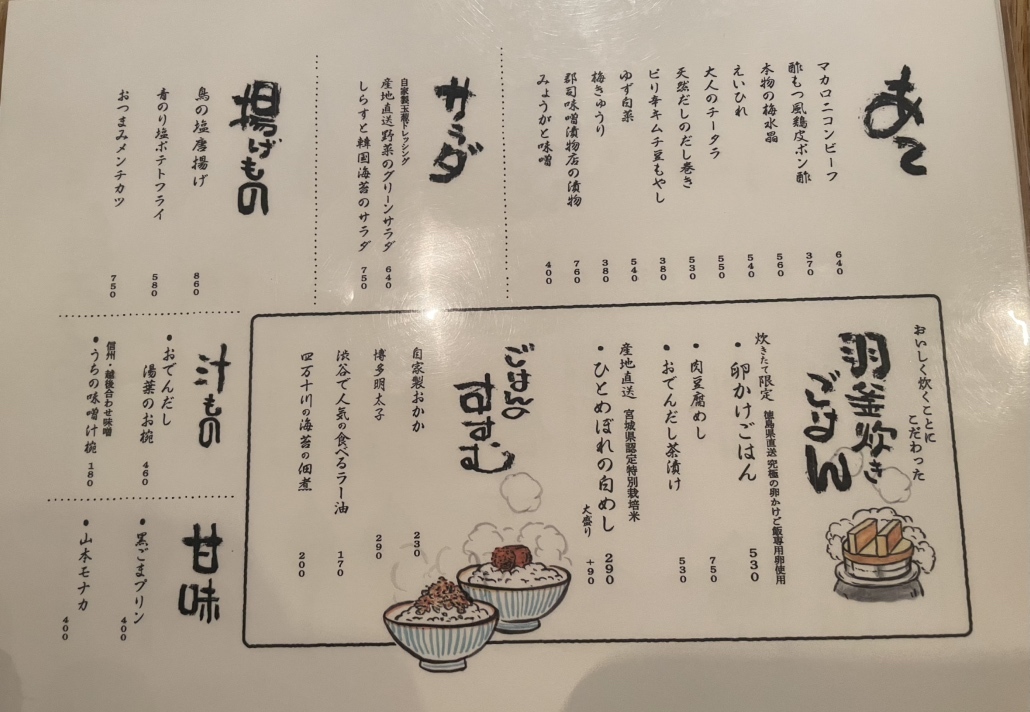 あて
マカロニコンビーフ 640
酢もつ風鶏皮ポン酢 370
本物の梅水晶 560
えいひれ 540
大人のチータラ 550
天然だしのだし巻き 530
ピリ辛キムチ豆もやし 380
ゆず白菜 540
梅きゅうり 380
郡司味噌漬物店の漬物 760
みょうがと味噌 400
サラダ
自家製玉葱ドレッシング
産地直送野菜のグリーンサラダ 640
しらすと韓国海苔のサラダ 750
揚げもの
鳥の塩唐揚げ 860
青のり塩ポテトフライ 580
おつまみメンチカツ 750
おいしく炊くことに
こだわった
羽釜炊き
ごはん
炊きたて限定 徳島県直送 究極の卵かけご飯専用卵使用
・卵かけごはん 530
・肉豆腐めし 750
・おでんだし茶漬け 530
産地直送 宮城県認定特別栽培米
・ひとめぼれの白めし 290
大盛り +90
ごはんの
すすむ
自家製おかか 230
博多明太子 290
渋谷で人気の食べるラー油 170
四万十川の海苔の佃煮 200
汁もの
・おでんだし
湯葉のお椀 460
信州・越後合わせ味噌
・うちの味噌汁椀 180
甘味
・黒ごまプリン 400
・山本モナカ 400